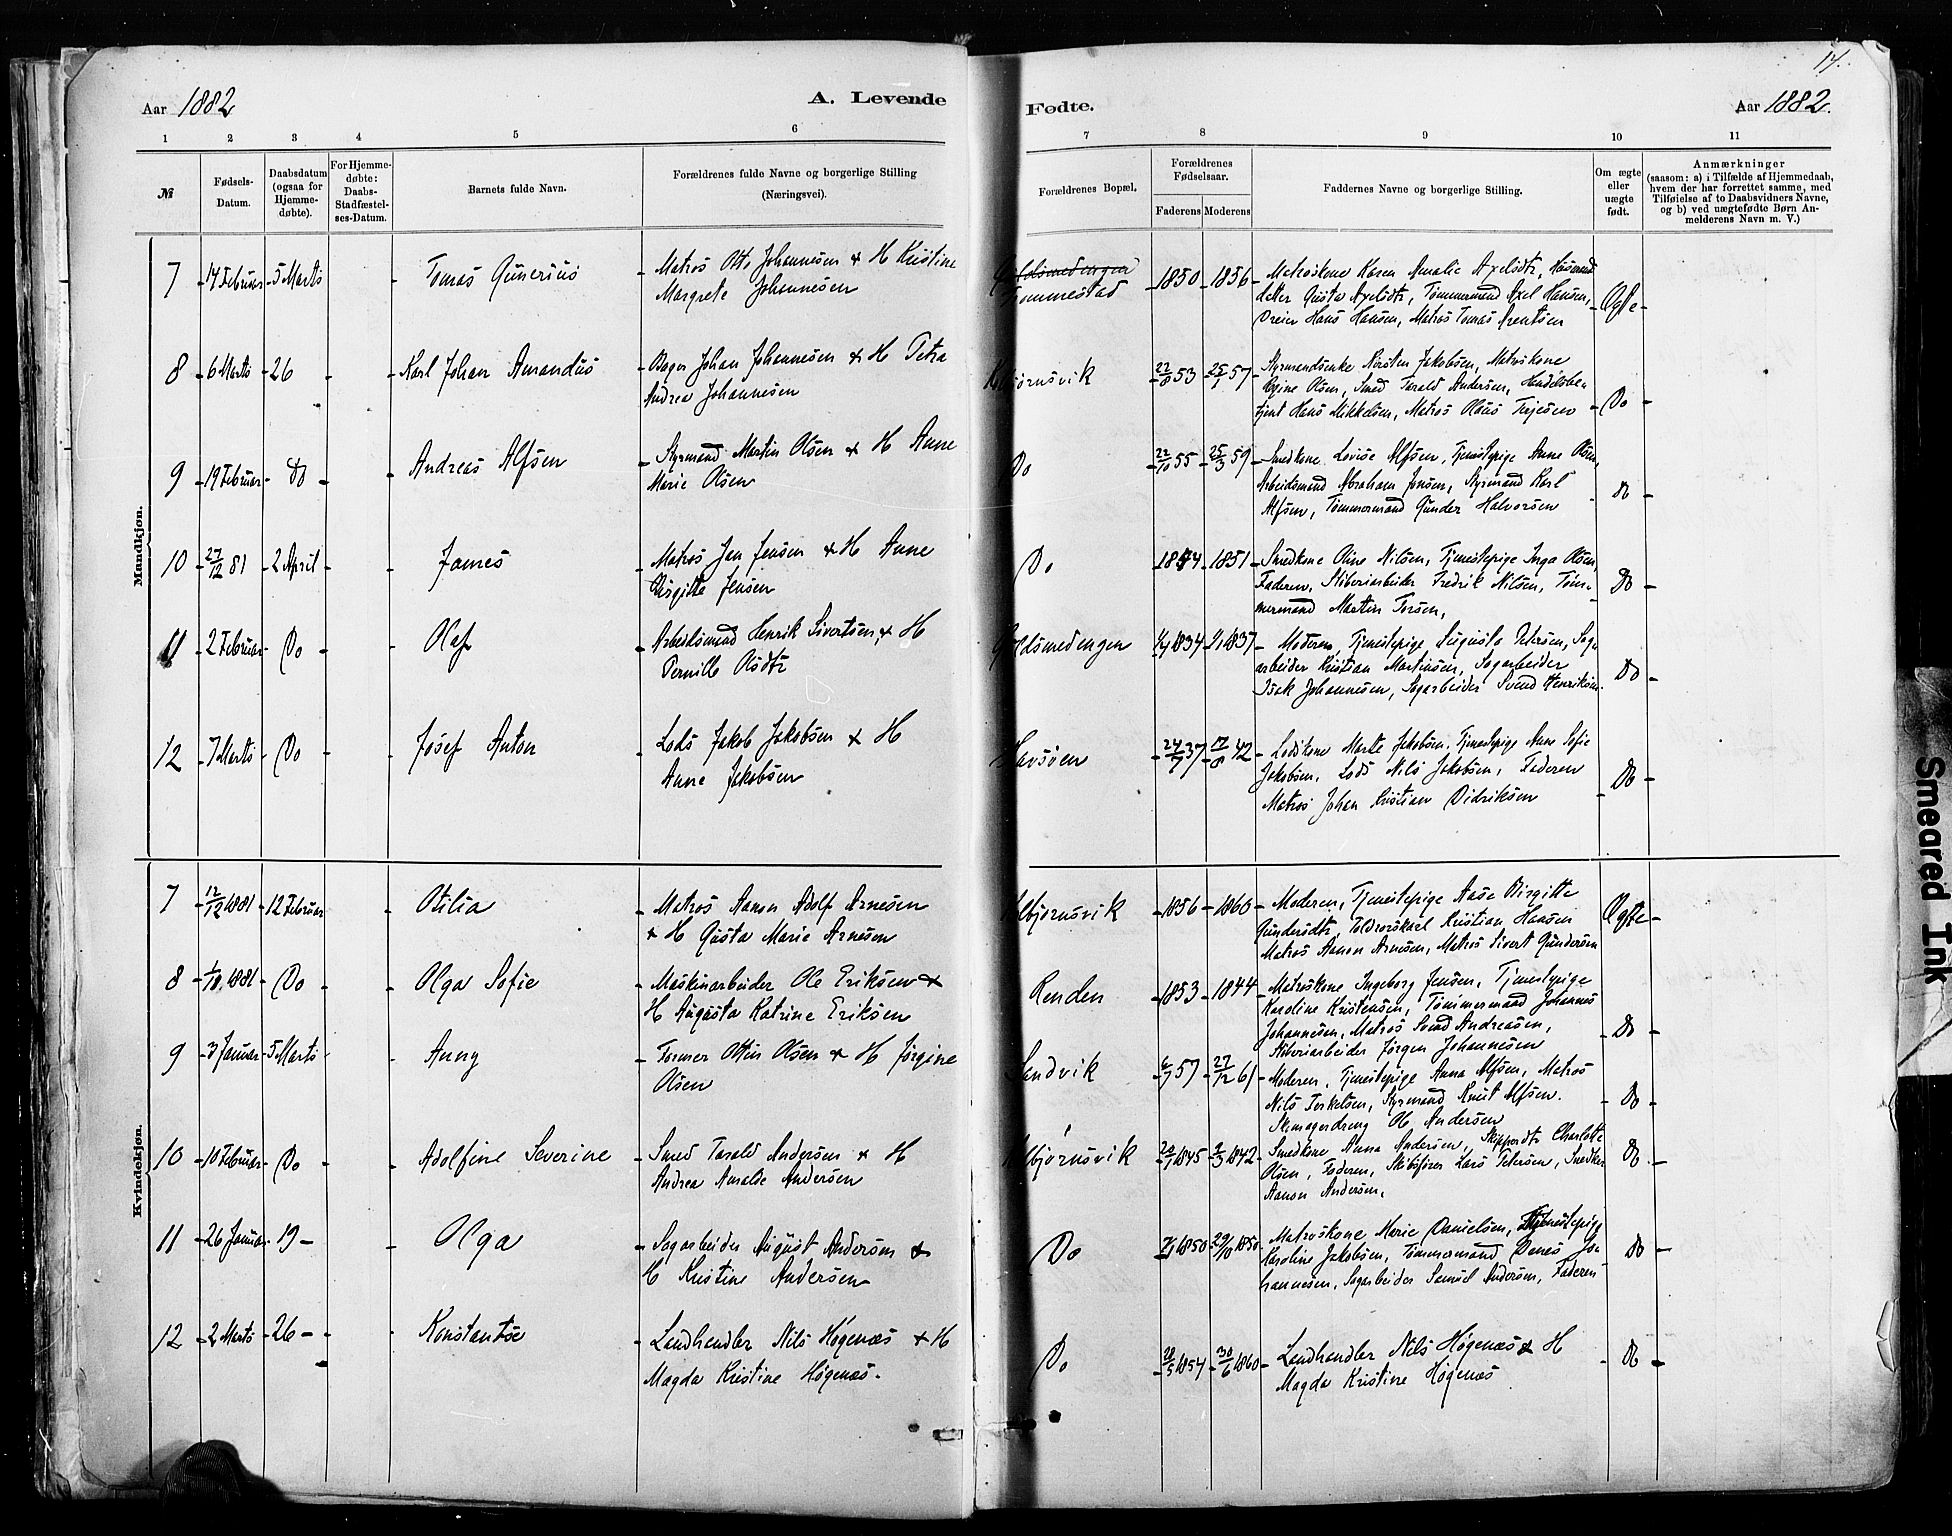 14.
Aar 1882
A. Levende
Fødte.
Aar 1882.
1 2 3 4 5 6 7 8 9 10 11
№
Fødsels-
Datum.
Daabsdatum
(ogsaa for
Hjemme-
døbte).
For Hjemme-
døbte:
Daabs-
Stadfæstel-
ses-Datum.
Barnets fulde Navn.
Forældrenes fulde Navne og borgerlige Stilling
(Næringsvei).
Forældrenes Bopæl.
Forældrenes
Fødselsaar.
Faderens Moderens
Faddernes Navne og borgerlige Stilling.
Om ægte
eller
uægte
født.
Anmærkninger
(saasom: a) i Tilfælde af Hjemmedaab,
hvem der har forrettet samme, med
Tilføielse af to Daabsvidners Navne,
og b) ved uægtefødte Børn An-
melderens Navn m. V.)
Mandkjøn.
7 14 Februar 5 Marts Tomas Gunerius
Matros Otto Johannesen & H Kristine
Margrete Johannesen
1850 1856
Matroskone Karen Amalie Axelsdtr,
datter Gusta Axelsdtr, Tømmermand Axel Hansen,
Dreier Hans Hansen, Matros Tomas Arentsen
Ægte
8 6 Marts 26 Karl Johan Amandus
Bager Johan Johannesen & H Petra
Andrea Johannesen
bjørnsvik
53 57
Jakobsen, Matroskone
Olsen, Smed Tarald Andersen, Handelsbe-
tjent Hans Mikkelsen, Matros Olaus Terjesen
Do
9 19 Februar Do Andreas Alfsen
Styrmand Martin Olsen & H Anne
Marie Olsen
Do
22/10 55 25/3 59
Smedkone Lovise Alfsen, Tjenestepige Anne Olsen,
Arbeidsmand Abraham Jensen, Styrmand Karl
Alfsen, Tømmermand Gunder Halvorsen
Do
10 27/12 81 2 April James
Matros Jen Jensen & H Anne
Birgitte Jensen
Do
1854 1851
Smedkone Oline Nilsen, Tjenestepige Inga Olsen,
Faderen, Støberiarbeider Fredrik Nilsen, Tøm-
mermand Martin Tersen,
Do
11 2 Februar Do Olaf
Arbeidsmand Henrik Sivertsen & H
Pernille Olsdtr
Guldsmedengen
1834 1837
Moderen, Tjenestepige Augusta Petersen, Sag-
arbeider Kristian Martinsen, Sagarbeider
Isak Johannesen, Sagarbeider Svend Henriksen.
Do
12 7 Marts Do Josef Anton
Lods Jakob Jakobsen & H
Anne Jakobsen
Havsøen
37 42
Lodskone Marte Jakobsen, Tjenestepige Ane Sofie
Jakobsen, Lods Nils Jakobsen, Faderen
Matros Johan Kristian Didriksen
Do
Kvindekjøn.
7 12/12 1881 12 Februar Otilia
Matros Aanon Adolf Arnesen
& H Gusta Marie Arnesen
bjørnsvik
1856 1860
Moderen, Tjenestepige Aase Birgitte
Gundersdtr, Toldrorskarl Kristian Hansen
Matros Aanon Arnesen, Matros Sivert Gundersen
Ægte
8 1/10 1881 Do Olga Sofie
Maskinarbeider Ole Eriksen &
H Augusta Katrine Eriksen
Renden
1853 1844
Matroskone Ingeborg Jensen, Tjenestepige
Karoline Kristensen, Tømmermand Johannes
Johannesen, Matros Svend Andreasen,
Støberiarbeider Jørgen Johannesen
Do
9 3 Januar 5 Marts Anny
Former Otton Olsen & H Jørgine
Olsen
Sandvik
57 27/12 61
Moderen, Tjenestepige Anna Alfsen, Matros
Nils Terkelsen, Styrmand Knut Alfsen.
Skomagerdreng Ole Andersen
Do
10 10 Februar Do Adolfine Severine
Smed Tarald Andersen & H
Andrea Amalde Andersen
bjørnsvik
1845 1842
Smedkone Anna Andersen, Charlotte
Olsen, Faderen, Skibsfører Lars Petersen,
Aanon Andersen,
Do
11 26 Januar 19 Olga
Sagarbeider August Andersen &
H Kristine Andersen
Do
1850 29/10 1850
Matroskone Marie Danielsen, Tjenestepige
Karoline Jakobsen, Tømmermand Jo-
hannesen, Sagarbeider Samuel Andersen, Faderen
Do
12 2 Marts 26 Konstantse
Landhandler Nils Høgenæs & H
Magda Kristine Høgenæs.
Do
28/5 1854 30/6 1860
Landhandler Nils Høgenæs & H
Magda Kristine Høgenæs
Do
Smeared Ink